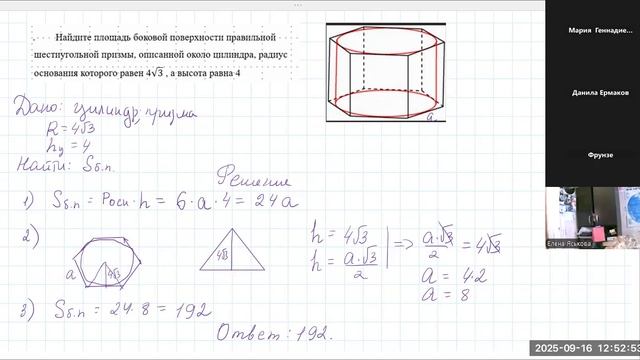 Найдите площадь боковой поверхности правильной
шестиугольной призмы, описанной около цилиндра, радиус
основания которого равен 4√3 , а высота равна 4
Дано: цилиндр, призма
R = 4√3
hц = 4
Найти: Sб.п.
Решение
1) Sб.п = Pосн · h = 6 · a · 4 = 24a
2)
a
4√3
4√3
h = 4√3
h = a·√3/2
=> a·√3/2 = 4√3
a = 4·2
a = 8
3) Sб.п = 24·8 = 192
Ответ: 192.
a
Мария Геннадие...
Данила Ермаков
Фрунзе
Елена Яськова
2025-09-16 12:52:53